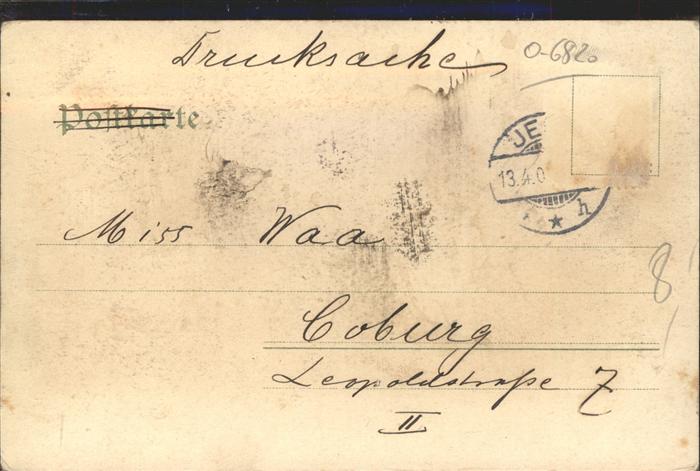 Drucksache
0-6820
Postkarte
JE
13.4.0
h
Miss Waa
8
Coburg
Leopoldstraße 7
II